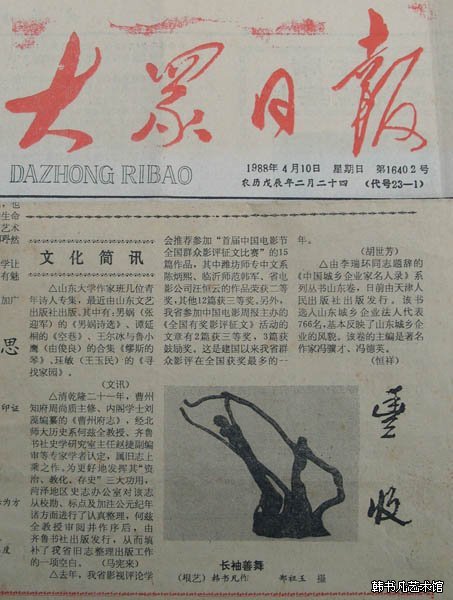 大众日报
DAZHONG RIBAO
1988年4月10日 星期日 第16402号
农历戊辰年二月二十四 (代号23—1)
文化简讯
△山东大学作家班几位青
年诗人专集，最近由山东文艺
出版社出版。其中有：男娲（张
迎军）的《男娲诗选》、谭延
桐的《空巷》、王尔冰与鲁小
鹰（由俊良）的合集《缪斯的
琴》、珏敏（王玉民）的《寻
找家园》。
（文讯）
△清乾隆二十一年，曹州
知府周尚质主修、内阁学士刘
藻编纂的《曹州府志》，经北
师大历史系何兹全教授、齐鲁
书社史学研究室主任赵捷副编
审等专家学者认定，属旧志上
乘之作。为更好地发挥其“资
治、教化、存史”三大功用，
菏泽地区史志办公室对该志
从校勘、标点及加注公元纪年
诸方面进行了认真整理，何兹
全教授审阅并作序后，由
齐鲁书社出版发行，从而填
补了我省旧志整理出版工作
的一项空白。（马宪来）
△去年，我省影视评论学
会推荐参加“首届中国电影节
全国群众影评征文比赛”的15
篇作品，其中潍坊师专中文系
陈炳熙、临沂师范韩军、省电
影公司汪恒云的作品荣获二等
奖，其他12篇获三等奖。另外，
我省参加中国电影周报主办的
《全国有奖影评征文》活动的
文章有2篇获三等奖，3篇获
鼓励奖。这是建国以来我省群
众影评在全国获奖最多的一
年。
（胡世芳）
△由李瑞环同志题辞的
《中国城乡企业家名人录》系
列丛书山东卷，日前由天津人
民出版社出版发行。该书
选入山东城乡企业法人代表
766名，基本反映了山东城乡企
业的风貌。该卷的主编是著名
作家冯骥才、冯德英。
（恒祥）
丰收
长袖善舞
（根艺）韩书凡作 郑祖玉 摄
，也
生命
艺术
学让
有魅
加广
思
印证
亦为方
度
韩书凡艺术馆